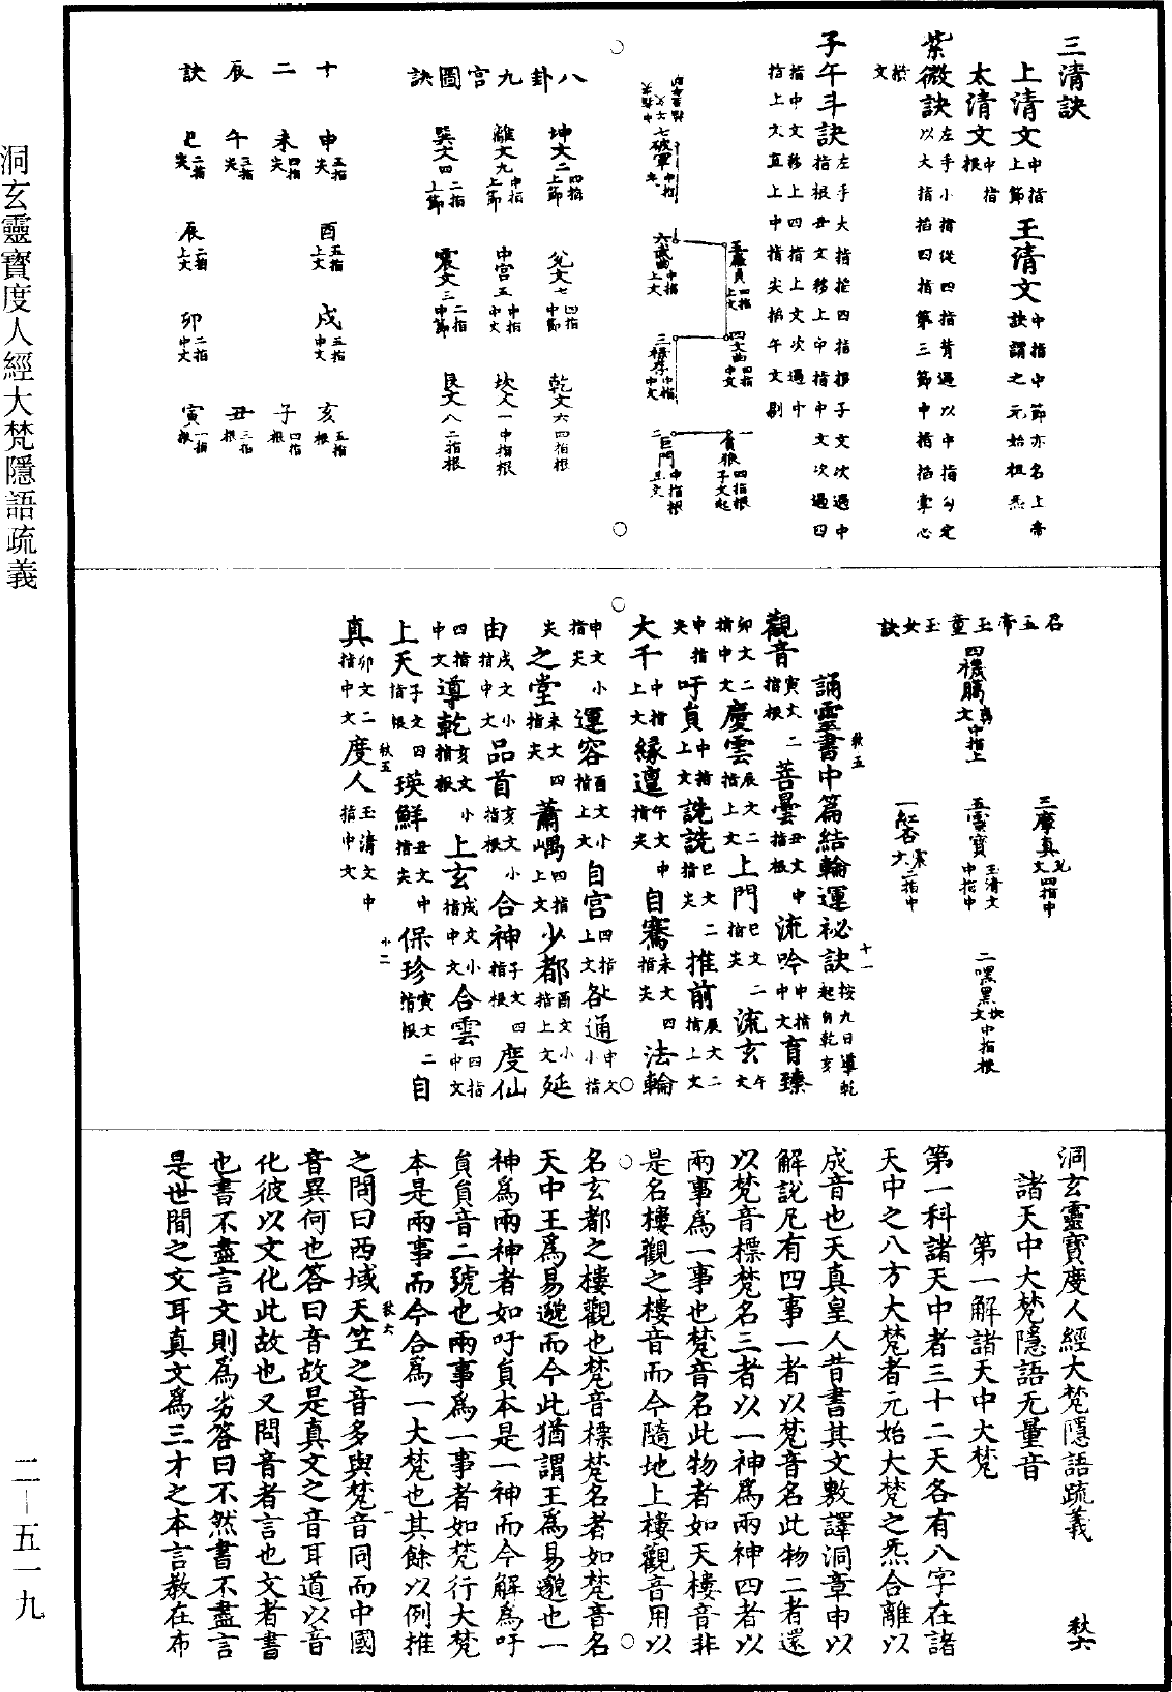 三清訣
上清文中指上節　玉清文中指中節亦名上帝訣謂之元始祖炁
太清文中指根
紫微訣左手小指從四指背過以中指勾定以大指掐四指第三節中指掐掌心
子午斗訣左手大指掐四指根子文次過中指根丑文移上中指中文次過四指中文移上四指上文次過中指上文直上中指尖掐午文剔
七破軍中指尖
六武曲中指上文
五廉貞四指上文
四文曲四指中文
三祿存中指中文
二巨門中指根丑文
貪狼四指根子文起
八卦九宮圖訣
坤文二四指上節　兌文七四指中節　乾文六四指根
離文九中指上節　中宮五中指中文　坎文一中指根
巽文四二指上節　震文三二指中節　艮文八二指根
十二辰訣
申五指尖　酉五指上文　戌五指中文　亥五指根
未四指尖　子四指根
午三指尖　丑三指根
巳二指尖　辰二指上文　卯二指中文　寅一指根
召五帝玉童玉女訣
三摩真兌文四指中
四機關離文中指上
五靈寶玉清文中指中
二嘿黑坎文中指根
一紅谷震文二指中
誦靈書中篇結輪運祕訣按九日導乾起自乾亥
觀音寅文二指根　菩曇丑文中指根　流吟中指中文　育臻卯文二指中文　慶雲辰文二指上文　上門巳文二指尖　流玄午文中指尖　吁員中指上文　詵詵巳文二指尖　推前辰文二指上文
大千中指上文　緣邅午文中指尖　自騫未文四指尖　法輪申文小指尖　運容酉文小指上文　自宮四指上文　各通申文小指尖　之堂未文四指尖　蕭嵎四指上文　少都酉文小指上文　延
由戌文小指中文　品首亥文小指根　合神子文四指根　度仙四指中文　導乾亥文小指根　上玄戌文小指中文　合雲四指中文
上天子文四指根　瑛鮮丑文中指尖　保珍寅文二指根　自
真卯文二指中文　度人玉清文中指中文
洞玄靈寶度人經大梵隱語疏義　秋六
諸天中大梵隱語无量音
第一解諸天中大梵
第一科諸天中者三十二天各有八字在諸
天中之八方大梵者元始大梵之炁合離以
成音也天真皇人昔書其文敷譯洞章申以
解說凡有四事一者以梵音名此物二者還
以梵音標梵名三者以一神爲兩神四者以
兩事爲一事也梵音名此物者如天樓音非
是名樓觀之樓音而今隨地上樓觀音用以
名玄都之樓觀也梵音標梵名者如梵音名
天中王爲易邈而今此猶謂王爲易邈也一
神爲兩神者如吁員本是一神而今解爲吁
員員音二號也兩事爲一事者如梵行大梵
本是兩事而今合爲一大梵也其餘以例推
之問曰西域天竺之音多與梵音同而中國
音異何也答曰音故是真文之音耳道以音
化彼以文化此故也又問音者言也文者書
也書不盡言文則爲劣答曰不然書不盡言
是世間之文耳真文爲三才之本言教在布
洞玄靈寶度人經大梵隱語疏義
二—五一九